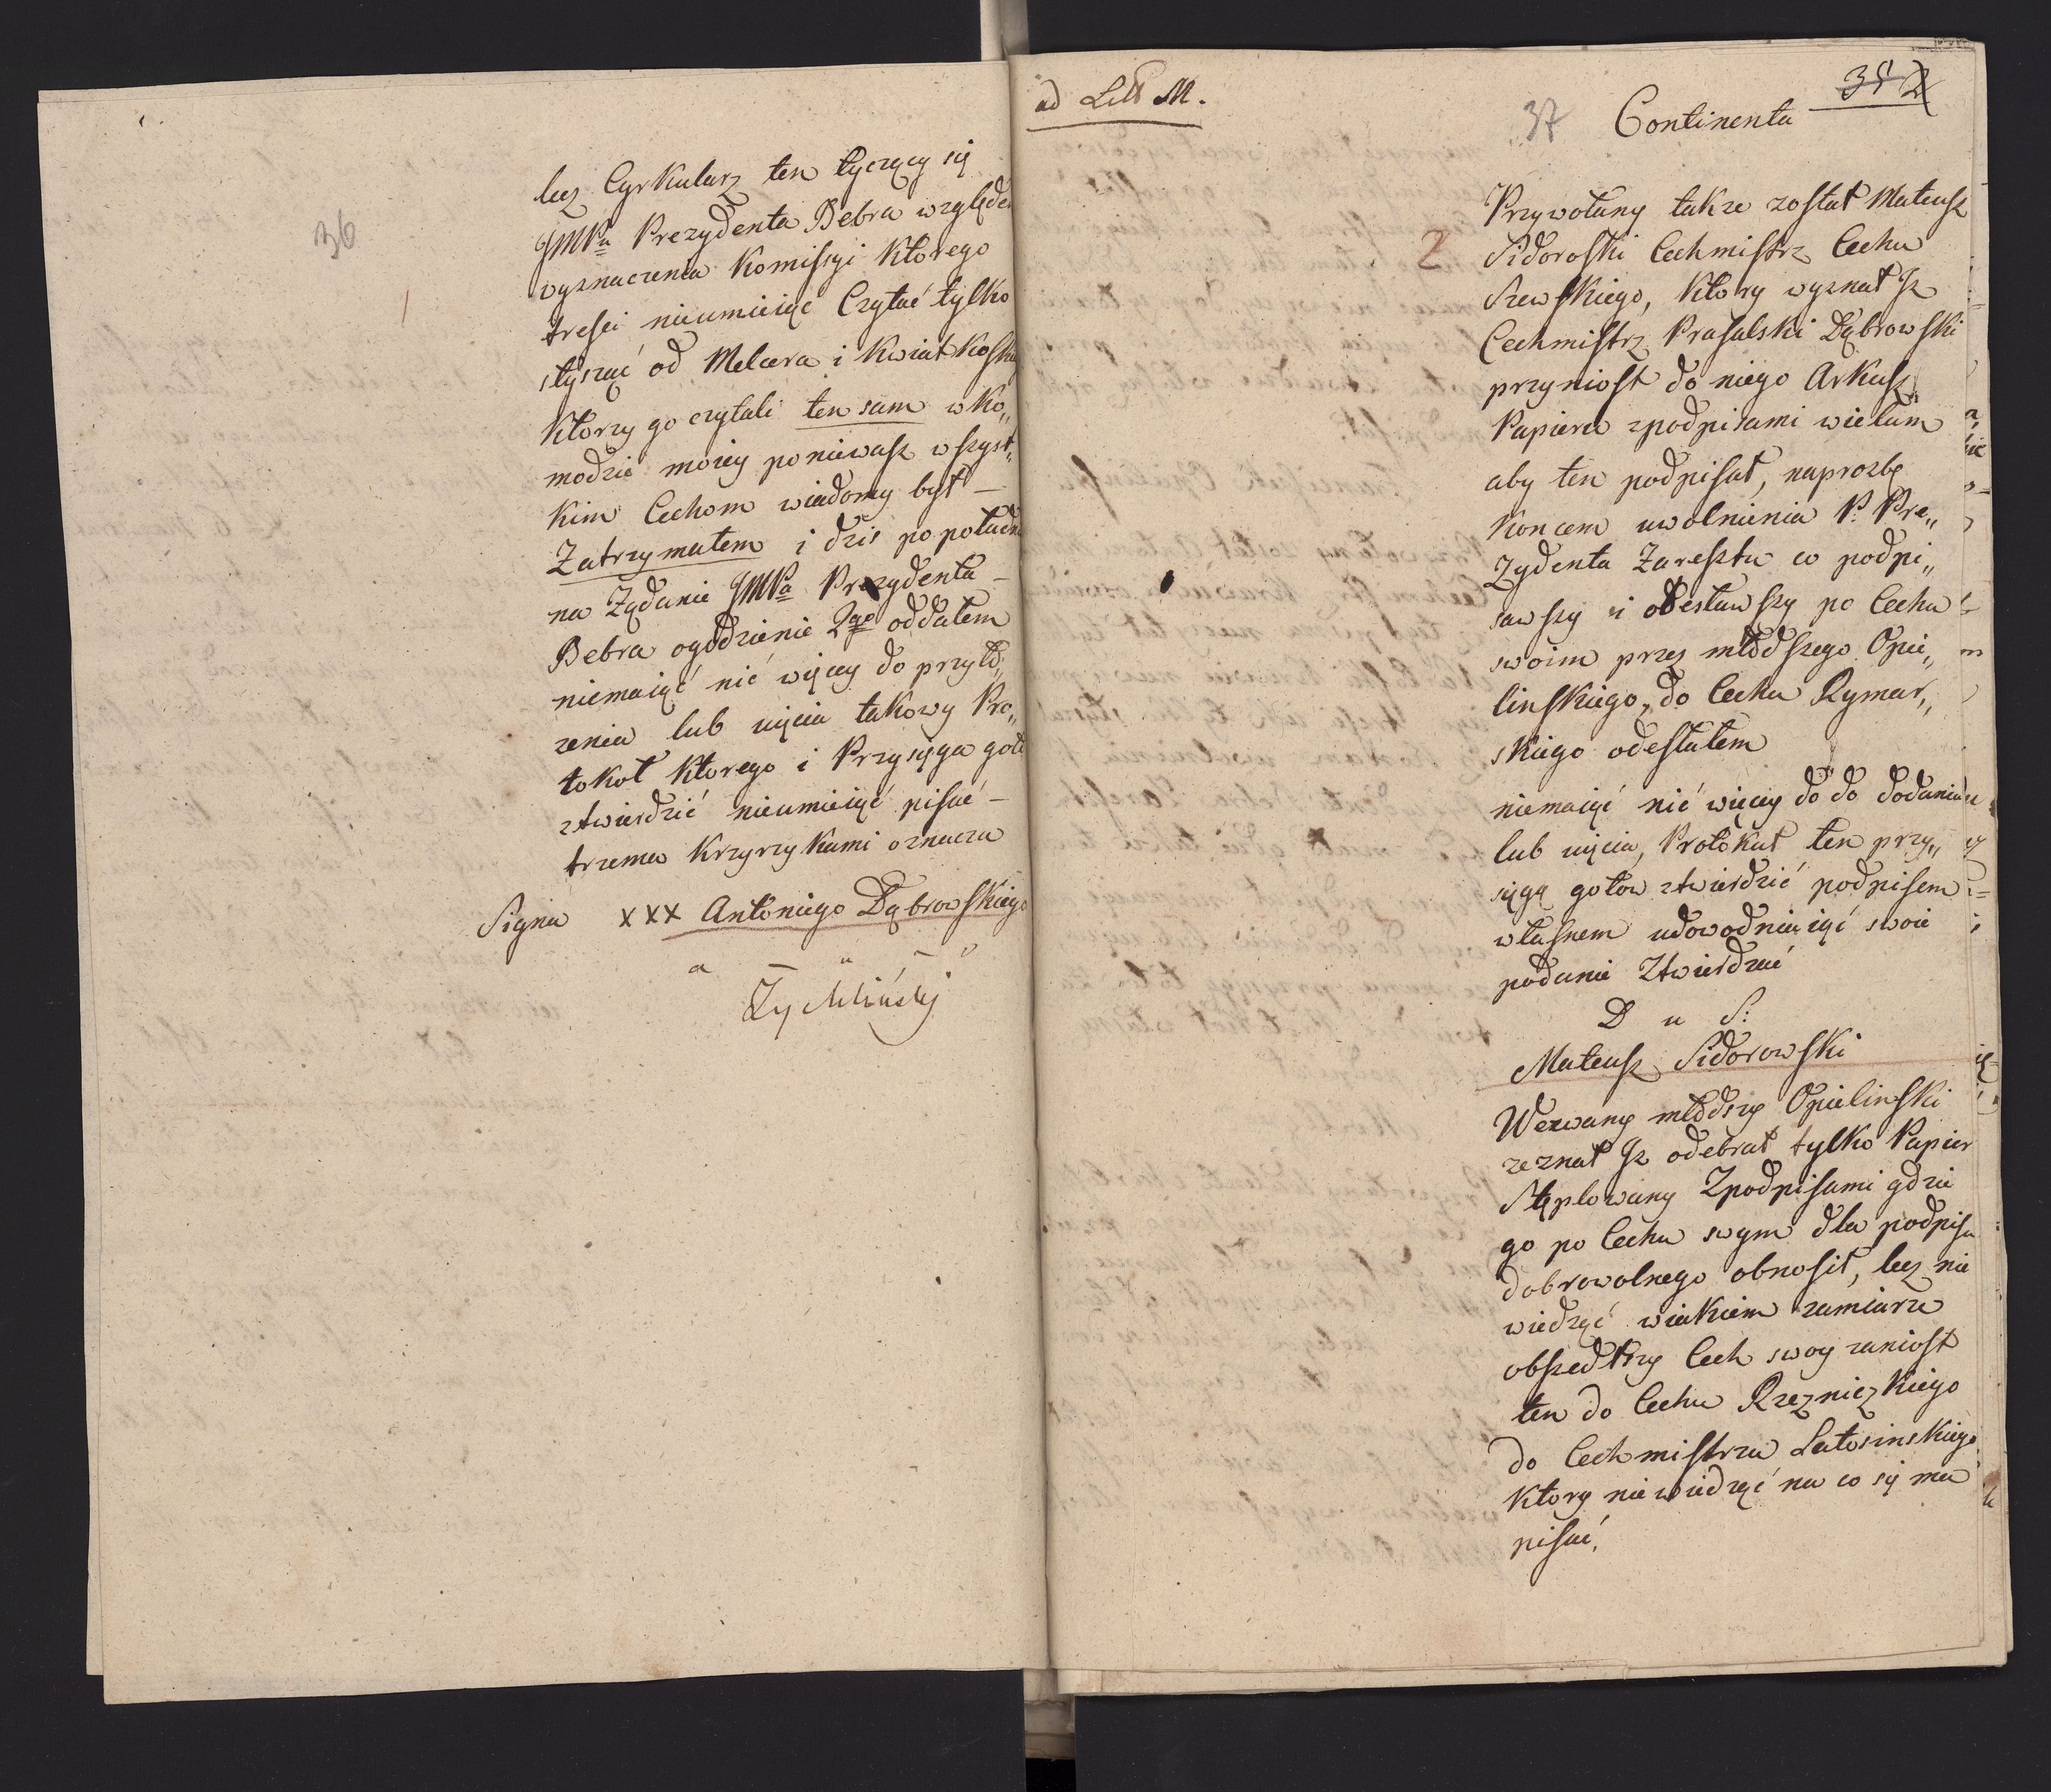 36
lecz Cyrkularz ten tyczący się
JMPa Prezydenta Bebra względem
wyznaczenia Komissyi Którego
tresci nieumieiąc Czytać tylko
słyszać od Melcera i Kwiatkoskie
Którzy go czytali ten sam w Ko„
modzie moiey poniewasz wszyst„
kim Cechom wiadomy był —
Zatrzymałem i dzis popołudn
na Ządanie JMPa Prezydenta —
Bebra ogodzienie 2go oddałem
niemaiąć nić więcey do przyło„
żenia lub uięcia takowy Pro„
tokoł Ktorego i Przysięga goto
ztwierdzić nieumieiąć pisać —
trzema Krzyrzykami oznacza
Signa xxx Antoniego Dąbrowskiego
Zychliński
ad Litt M.
37 Continenta 35 2
2
Przywołany takze został Mateusz
Sidoroski Cechmistrz Cechu
Szewskiego, Ktory wyznał Jz
Cechmistrz Prasalski Dąbrowski
przyniosł do niego Arkusz
Papieru zpodpisami wielam
aby ten podpisał, naprozbę
Koncem uwolnienia P. Pre„
zydenta Zaresztu co podpi„
sawszy i obesławszy po Cechu
swoim przez młodszego Opie„
linskiego, do Cechu Rymar„
skiego odesłałem
niemaiąć nić więcey do do dodania
lub uięcia, Protokuł ten przy„
sięgą gotow ztwierdzić podpisem
własnem udowodnieiąć swoie
podanie Ztwierdzać
D u S:
Mateusz Sidorowski
Wezwany młodszy Opielinski
zeznał Jz odebrał tylko Papier
Stęplowany Zpodpisami gdzie
go po Cechu swym dla podpisu
dobrowolnego obnosił, lecz nie
wiedząć wiakiem zamiarze
obszedłszy Cech swoy zaniosł
ten do Cechu Rzezniczkiego
do Cechmistrza Latosinskiego
Ktory nie wiedząć na co się ma
pisać,